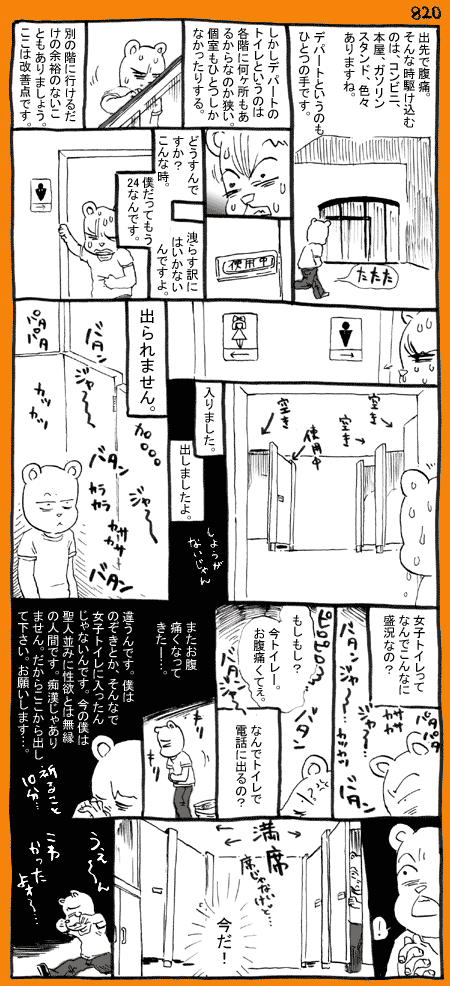 820
出先で腹痛。
そんな時駆け込む
のは、コンビニ、
本屋、ガソリン
スタンド、色々
ありますね。
デパートというのも
ひとつの手です。
たたた
しかしデパートの
トイレというのは
各階に何ヶ所もあ
るからなのか狭い。
個室もひとつしか
なかったりする。
別の階に行けるだ
けの余裕のないこ
ともありましょう。
ここは改善点です。
使用中
どうすんで
すか？
こんな時。
僕だってもう
24なんです。
洩らす訳に
はいかない
んですよ。
空き
空き
使用中
空き
入りました。
出しましたよ。
しょうが
ないじゃん
出られません。
パタ
パタ
バタン
ジャー
カッ
カッ
バタン
カラ
カラ
ジャー
カサ
カサ
バタン
女子トイレって
なんでこんなに
盛況なの？
パタ
パタ
カサ
カサ
ジャー
バタン
カッカッ
バタン
ピロピロ
もしもし？
今トイレー。
お腹痛くてぇ。
バタン
なんでトイレで
電話に出るの？
またお腹
痛くなって
きたー…。
違うんです。僕は
のぞきとか、そんなで
女子トイレに入ったん
じゃないんです。今の僕は
聖人並みに性欲とは無縁
の人間です。痴漢じゃあり
ません。だからここから出し
て下さい。お願いします…。
祈ること
10分…
!
満席
席じゃない
けど…
今だ！
うえ〜〜ん
こわ
かった
よぉ〜…